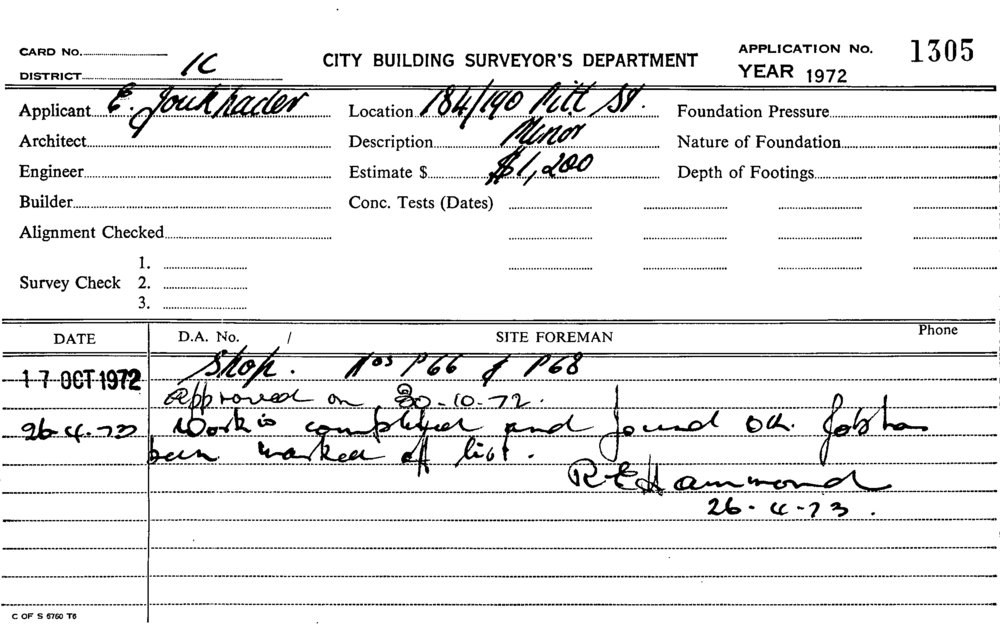 CARD No.
CITY BUILDING SURVEYOR'S DEPARTMENT
APPLICATION No. 1305
DISTRICT 1C
YEAR 1972
Applicant E. Joukhader
Location 184/190 Pitt St.
Foundation Pressure
Architect
Description Minor
Nature of Foundation
Engineer
Estimate $ $1,200
Depth of Footings
Builder
Conc. Tests (Dates)
Alignment Checked
Survey Check
1.
2.
3.
DATE
D.A. No. /
SITE FOREMAN
Phone
17 OCT 1972 Shop. Nos P66 & P68
Approved on 20-10-72.
26-4-73 Work is completed and found OK. Job has
been marked off list.
R E Hammond
26-4-73.
C OF S 6760 T6